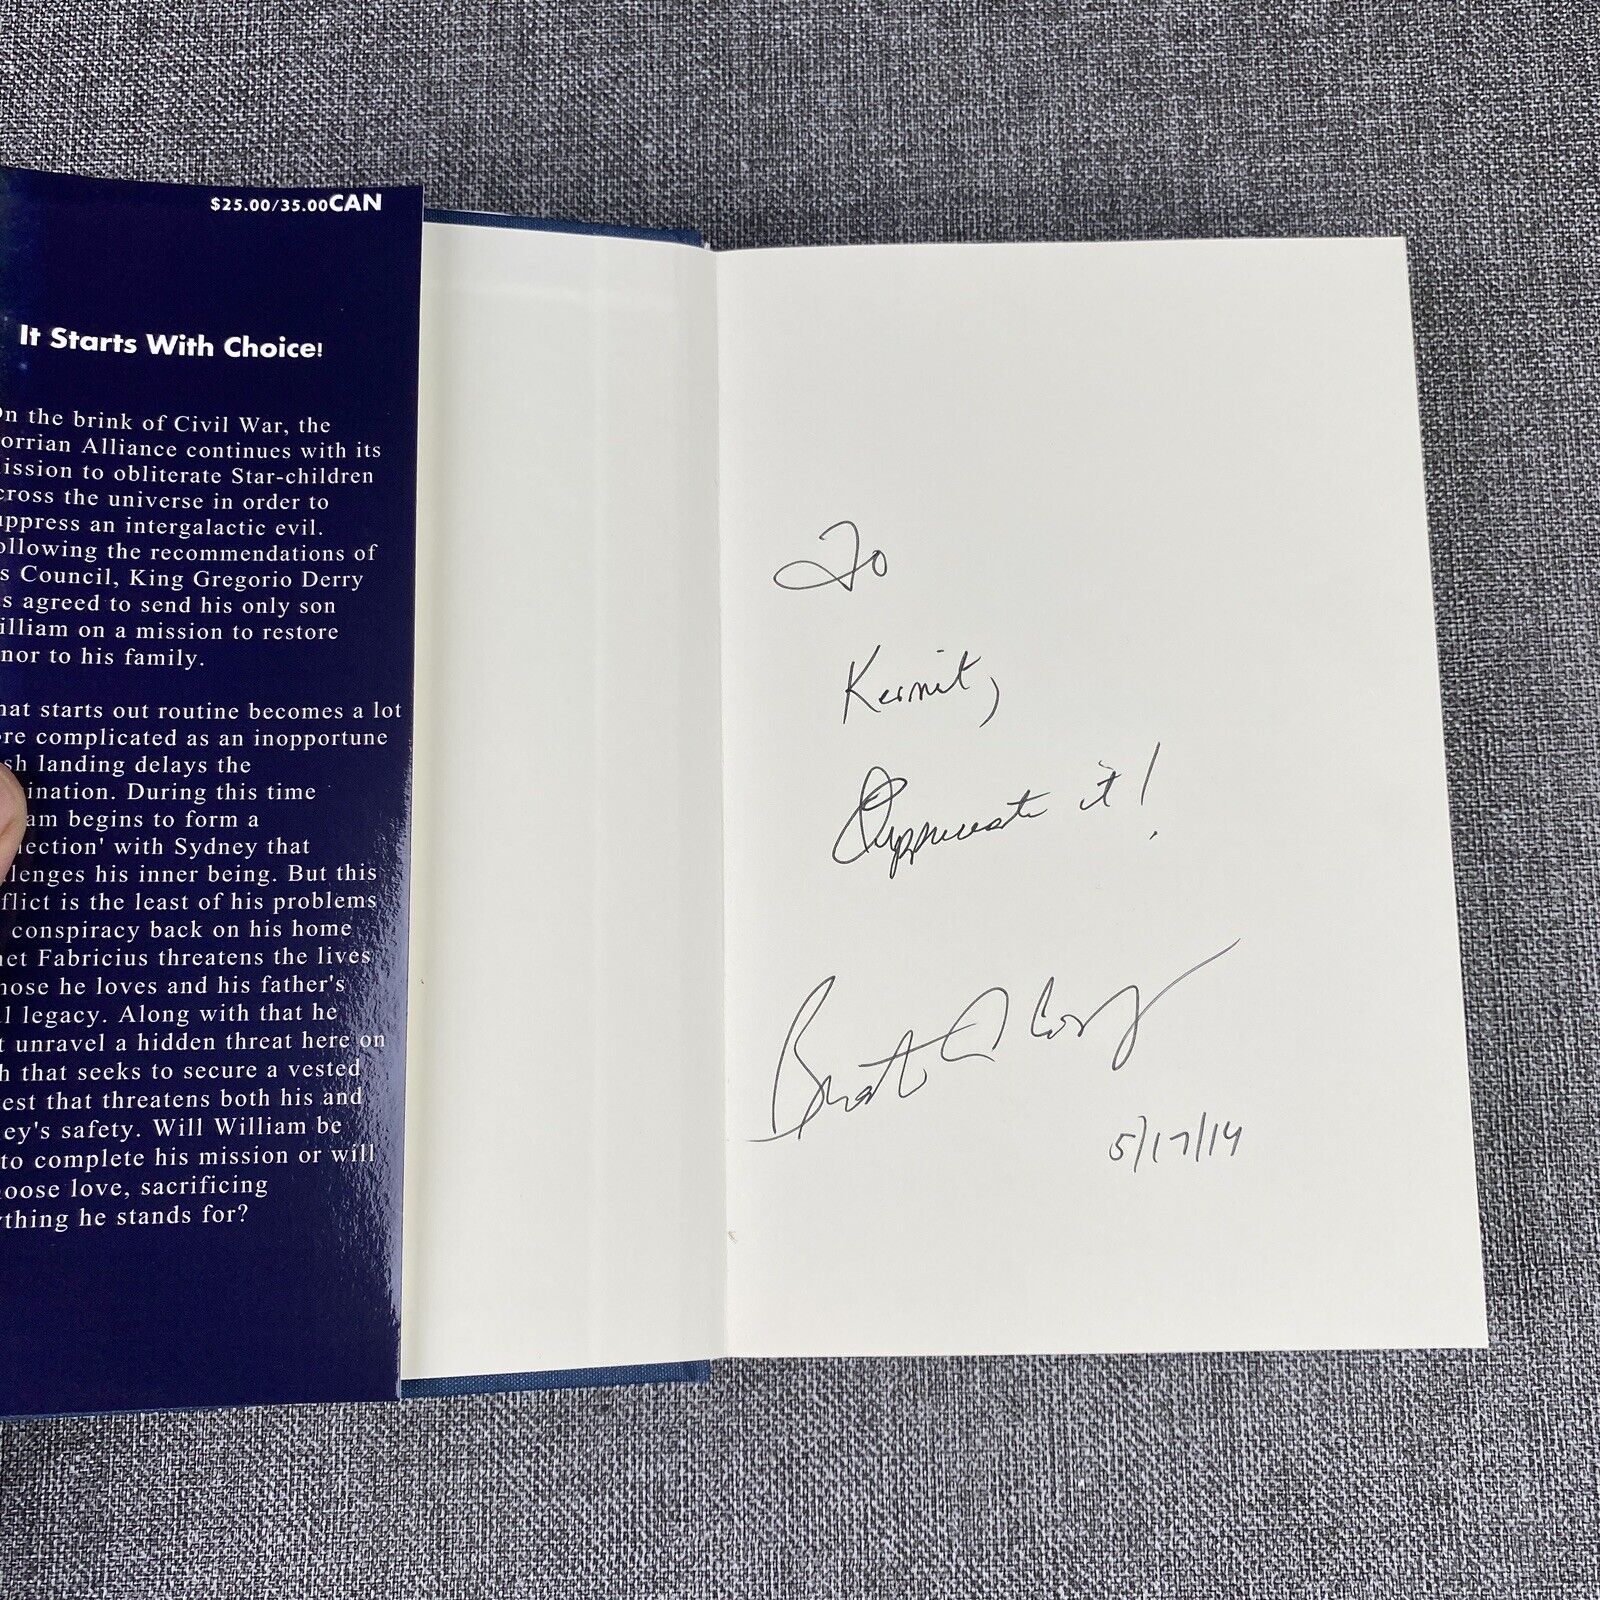 $25.00/35.00CAN
It Starts With Choice!
On the brink of Civil War, the
orrian Alliance continues with its
ission to obliterate Star-children
cross the universe in order to
uppress an intergalactic evil.
ollowing the recommendations of
s Council, King Gregorio Derry
s agreed to send his only son
illiam on a mission to restore
nor to his family.
hat starts out routine becomes a lot
ore complicated as an inopportune
sh landing delays the
ination. During this time
am begins to form a
ection' with Sydney that
lenges his inner being. But this
flict is the least of his problems
conspiracy back on his home
net Fabricius threatens the lives
hose he loves and his father's
l legacy. Along with that he
t unravel a hidden threat here on
h that seeks to secure a vested
est that threatens both his and
ey's safety. Will William be
to complete his mission or will
oose love, sacrificing
ything he stands for?
To
Kermit,
Appreciate it!
5/17/14